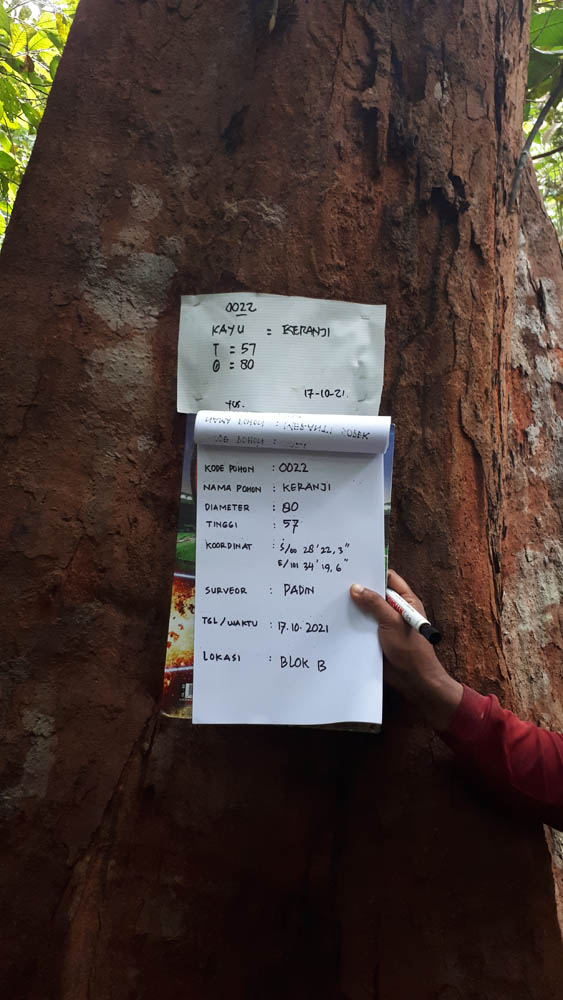 0022
KAYU = KERANJI
T = 57
Ø = 80
17-10-21.
YUS.
KODE POHON : 0022
NAMA POHON : KERANJI
DIAMETER : 80
TINGGI : 57
KOORDINAT : S/00 28'22,3"
E/101 34'19,6"
SURVEOR : PADIN
TGL/WAKTU : 17.10.2021
LOKASI : BLOK B